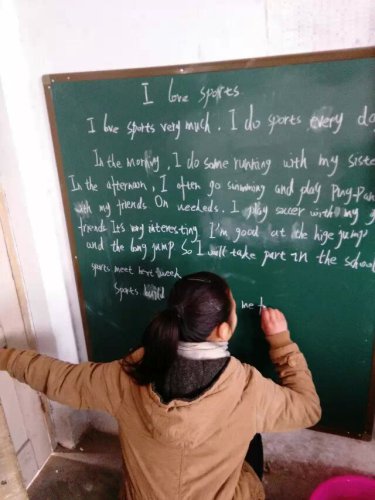 I love sports
I love sports very much. I do sports every da
In the morning, I do some running with my siste
In the afternoon, I often go swimming and play Ping-Pan
with my friends On weekeds. I play soccer with my
friends It's my interesting I'm good at the hige jump
and the long jump So I will take part in the school
sports meet next week
Sports build me